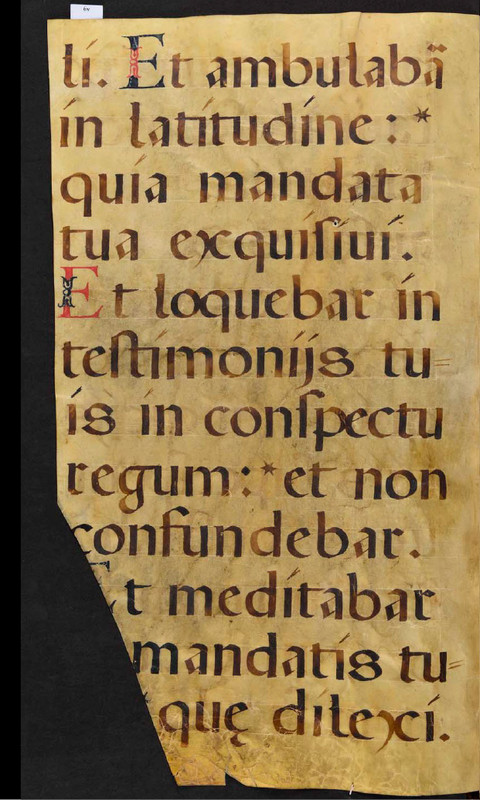 li. Et ambulabã
in latitudine: *
quia mandata
tua exquiſiui.
Et loquebar in
teſtimonijs tu=
is in conſpectu
regum: * et non
confundebar.
Et meditabar
mandatis tu=
quę dilexi.